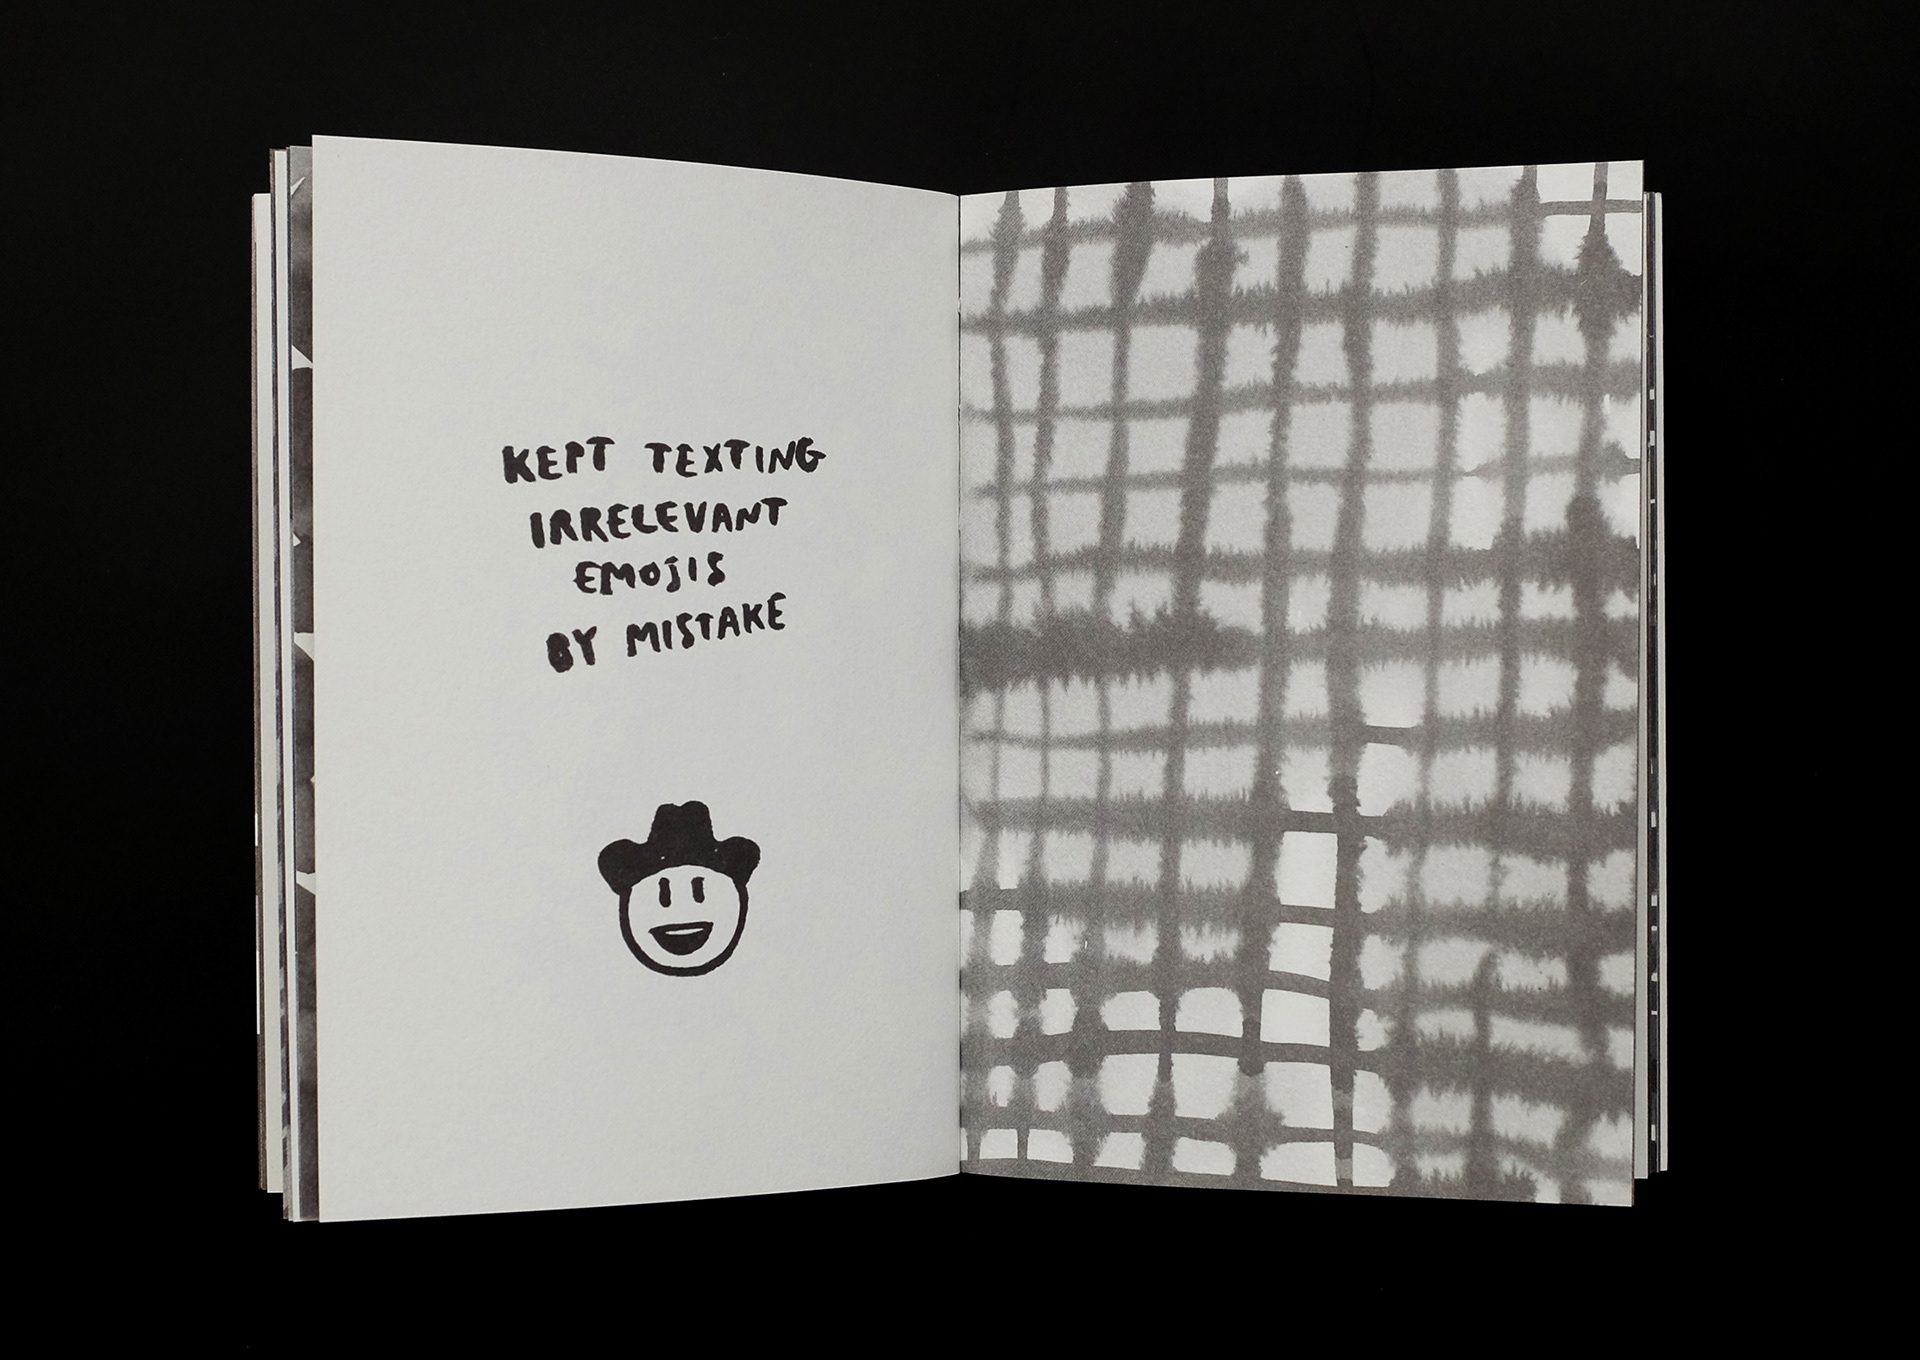 KEPT TEXTING
IRRELEVANT
EMOJIS
BY MISTAKE